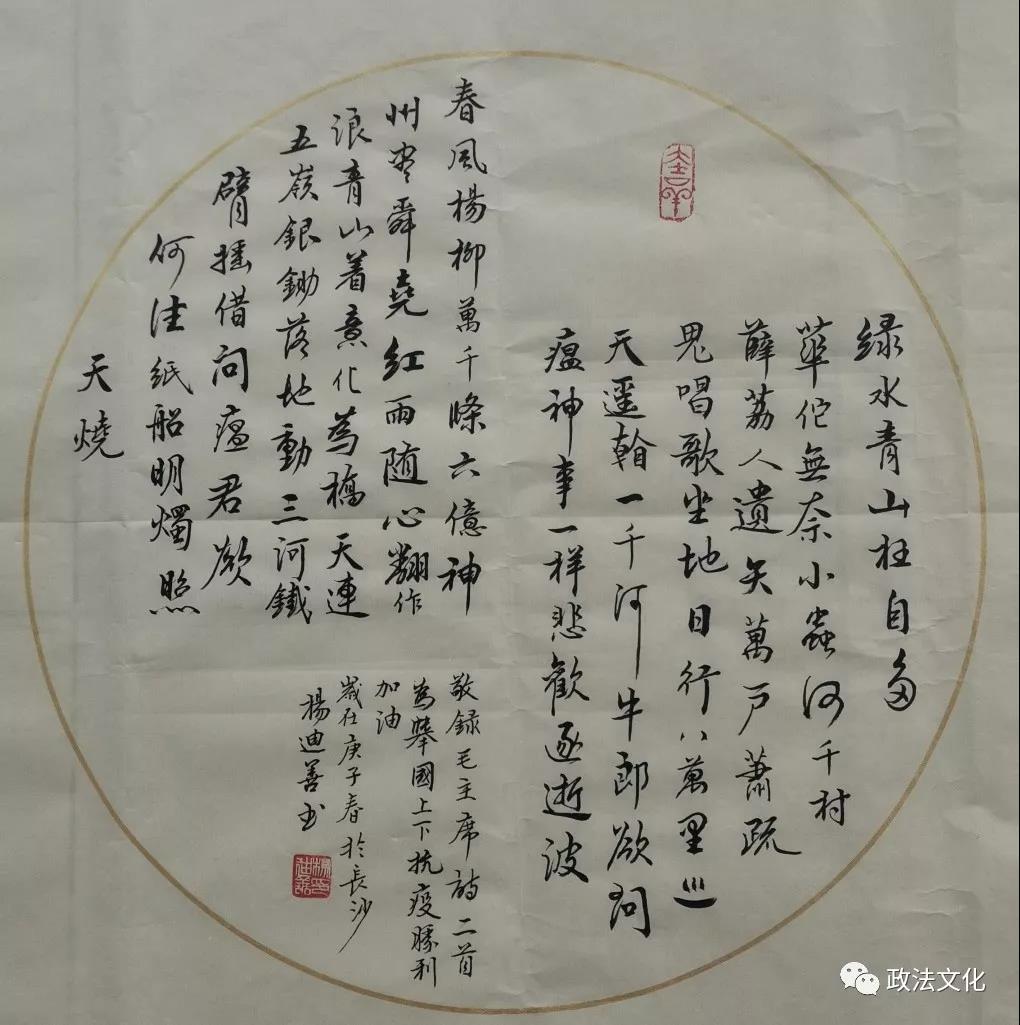 绿水青山枉自多
華佗無奈小蟲何千村
薜荔人遺矢萬戶蕭疏
鬼唱歌坐地日行八萬里巡
天遥看一千河牛郎欲问
瘟神事一样悲歡逐逝波
春風楊柳萬千條六億神
州盡舜堯红雨随心翻作
浪青山着意化為橋天連
五嶺銀鋤落地動三河鐵
臂摇借问瘟君欲
何往纸船明燭照
天燒
敬録毛主席詩二首
為舉國上下抗疫勝利
加油
歲在庚子春於長沙
楊迪善书
大吉羊
政法文化